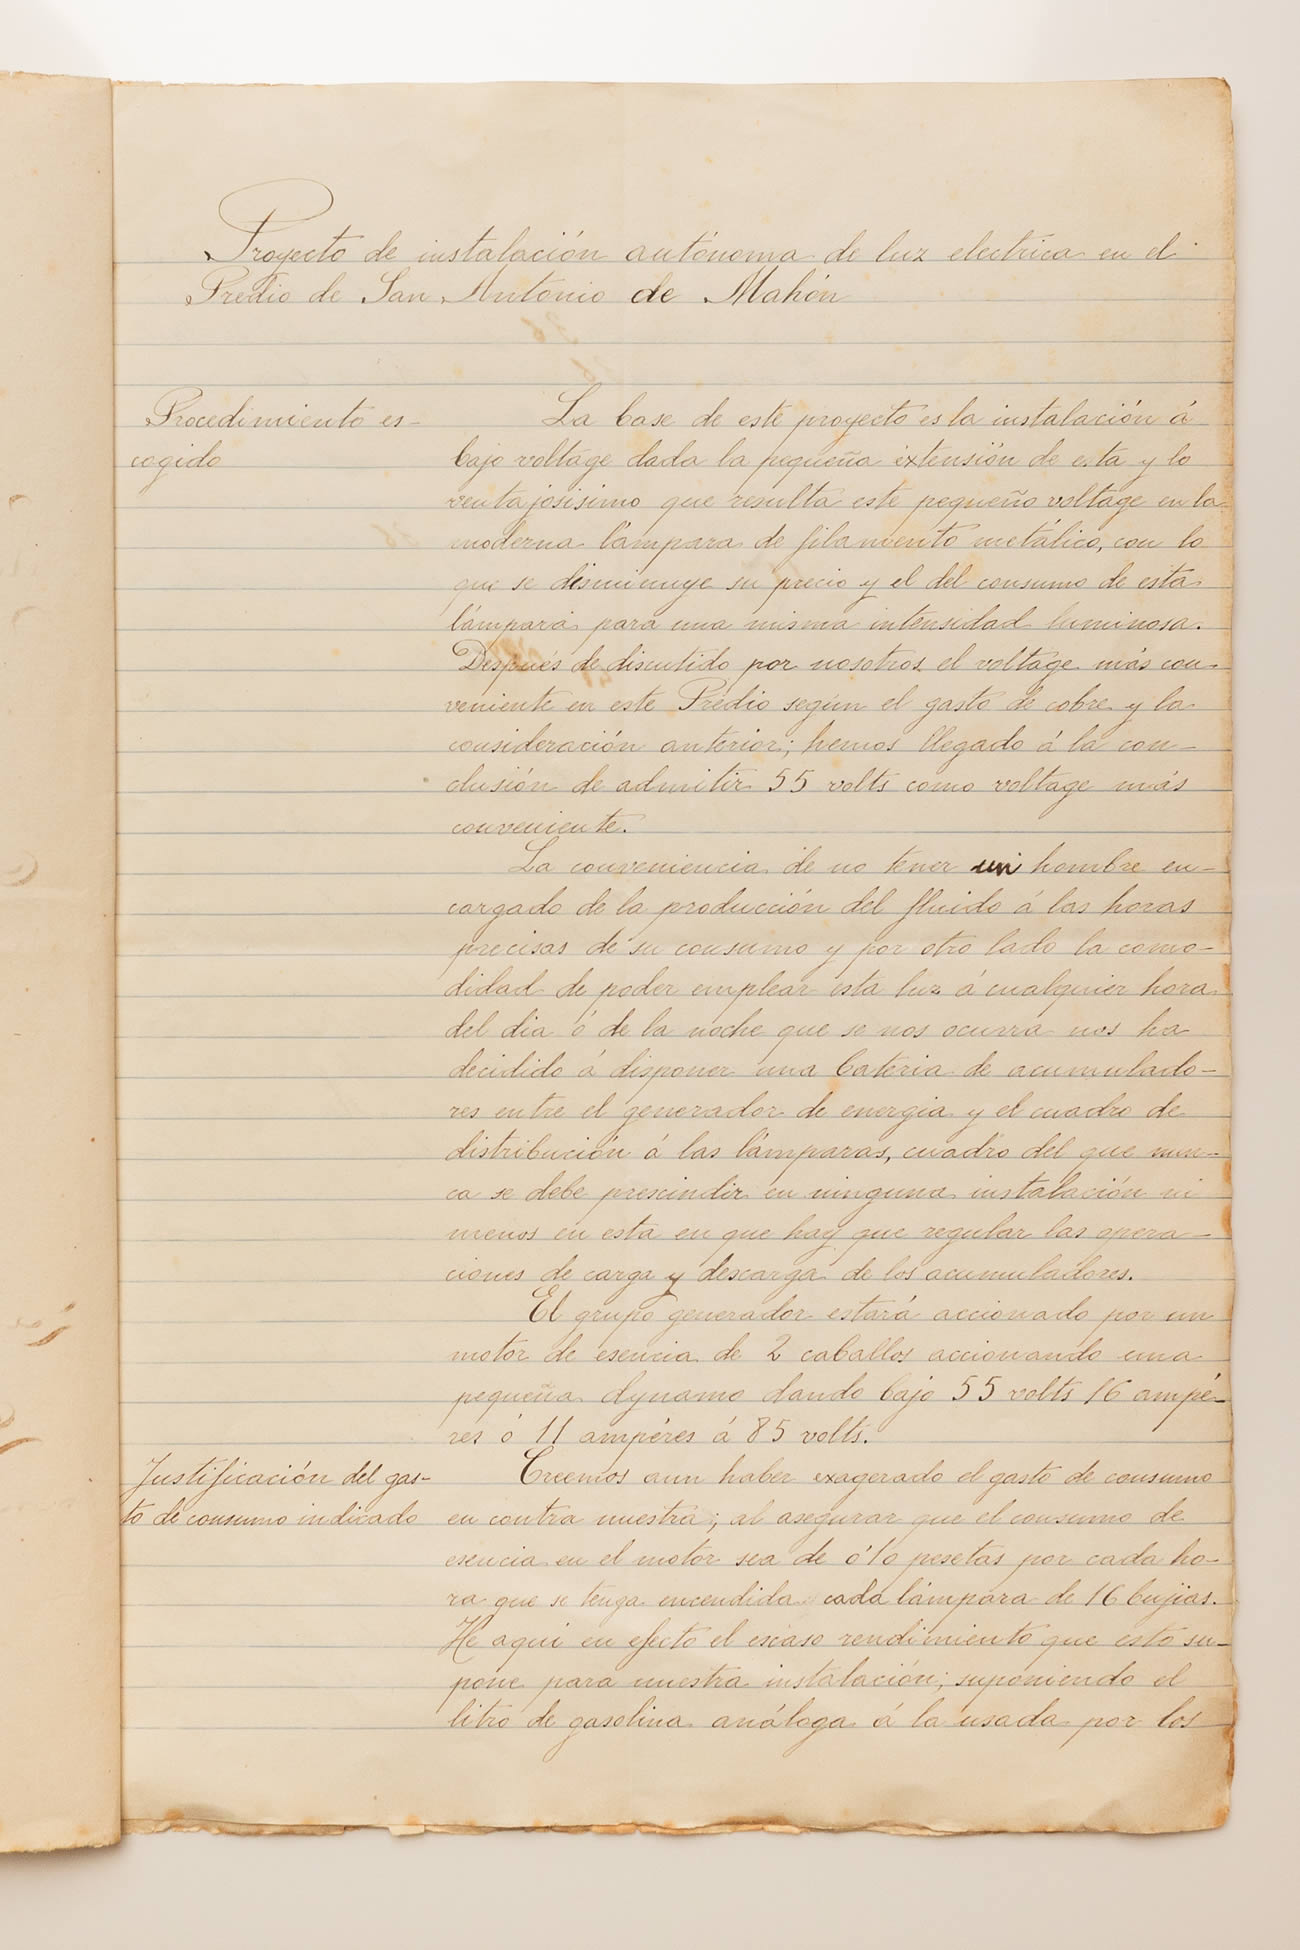 Proyecto de instalación autónoma de luz electrica en el
Predio de San Antonio de Mahón
Procedimiento es-
cogido
La base de este proyecto es la instalación á
bajo voltage dada la pequeña extensión de esta y lo
ventajosisimo que resulta este pequeño voltage en la
moderna lámpara de filamento metálico, con lo
que se disminuye su precio y el del consumo de esta
lámpara para una misma intensidad luminosa.
Después de discutido por nosotros el voltage más con-
veniente en este Predio según el gasto de cobre y la
consideración anterior; hemos llegado á la con-
clusión de admitir 55 volts como voltage más
conveniente.
La conveniencia de no tener un hombre en-
cargado de la producción del fluido á las horas
precisas de su consumo y por otro lado la como-
didad de poder emplear esta luz á cualquier hora
del dia ó de la noche que se nos ocurra nos ha
decidido á disponer una bateria de acumulado-
res entre el generador de energia y el cuadro de
distribución á las lámparas, cuadro del que nun-
ca se debe prescindir en ninguna instalación ni
menos en esta en que hay que regular las opera-
ciones de carga y descarga de los acumuladores.
El grupo generador estará accionado por un
motor de esencia de 2 caballos accionando una
pequeña dynamo dando bajo 55 volts 16 ampé-
res ó 11 ampéres á 85 volts.
Justificación del gas-
to de consumo indicado
Creemos aun haber exagerado el gasto de consumo
en contra nuestra; al asegurar que el consumo de
esencia en el motor sea de 0'10 pesetas por cada ho-
ra que se tenga encendida cada lámpara de 16 bujias.
He aqui en efecto el escaso rendimiento que esto su-
pone para nuestra instalación; suponiendo el
litro de gasolina análoga á la usada por los